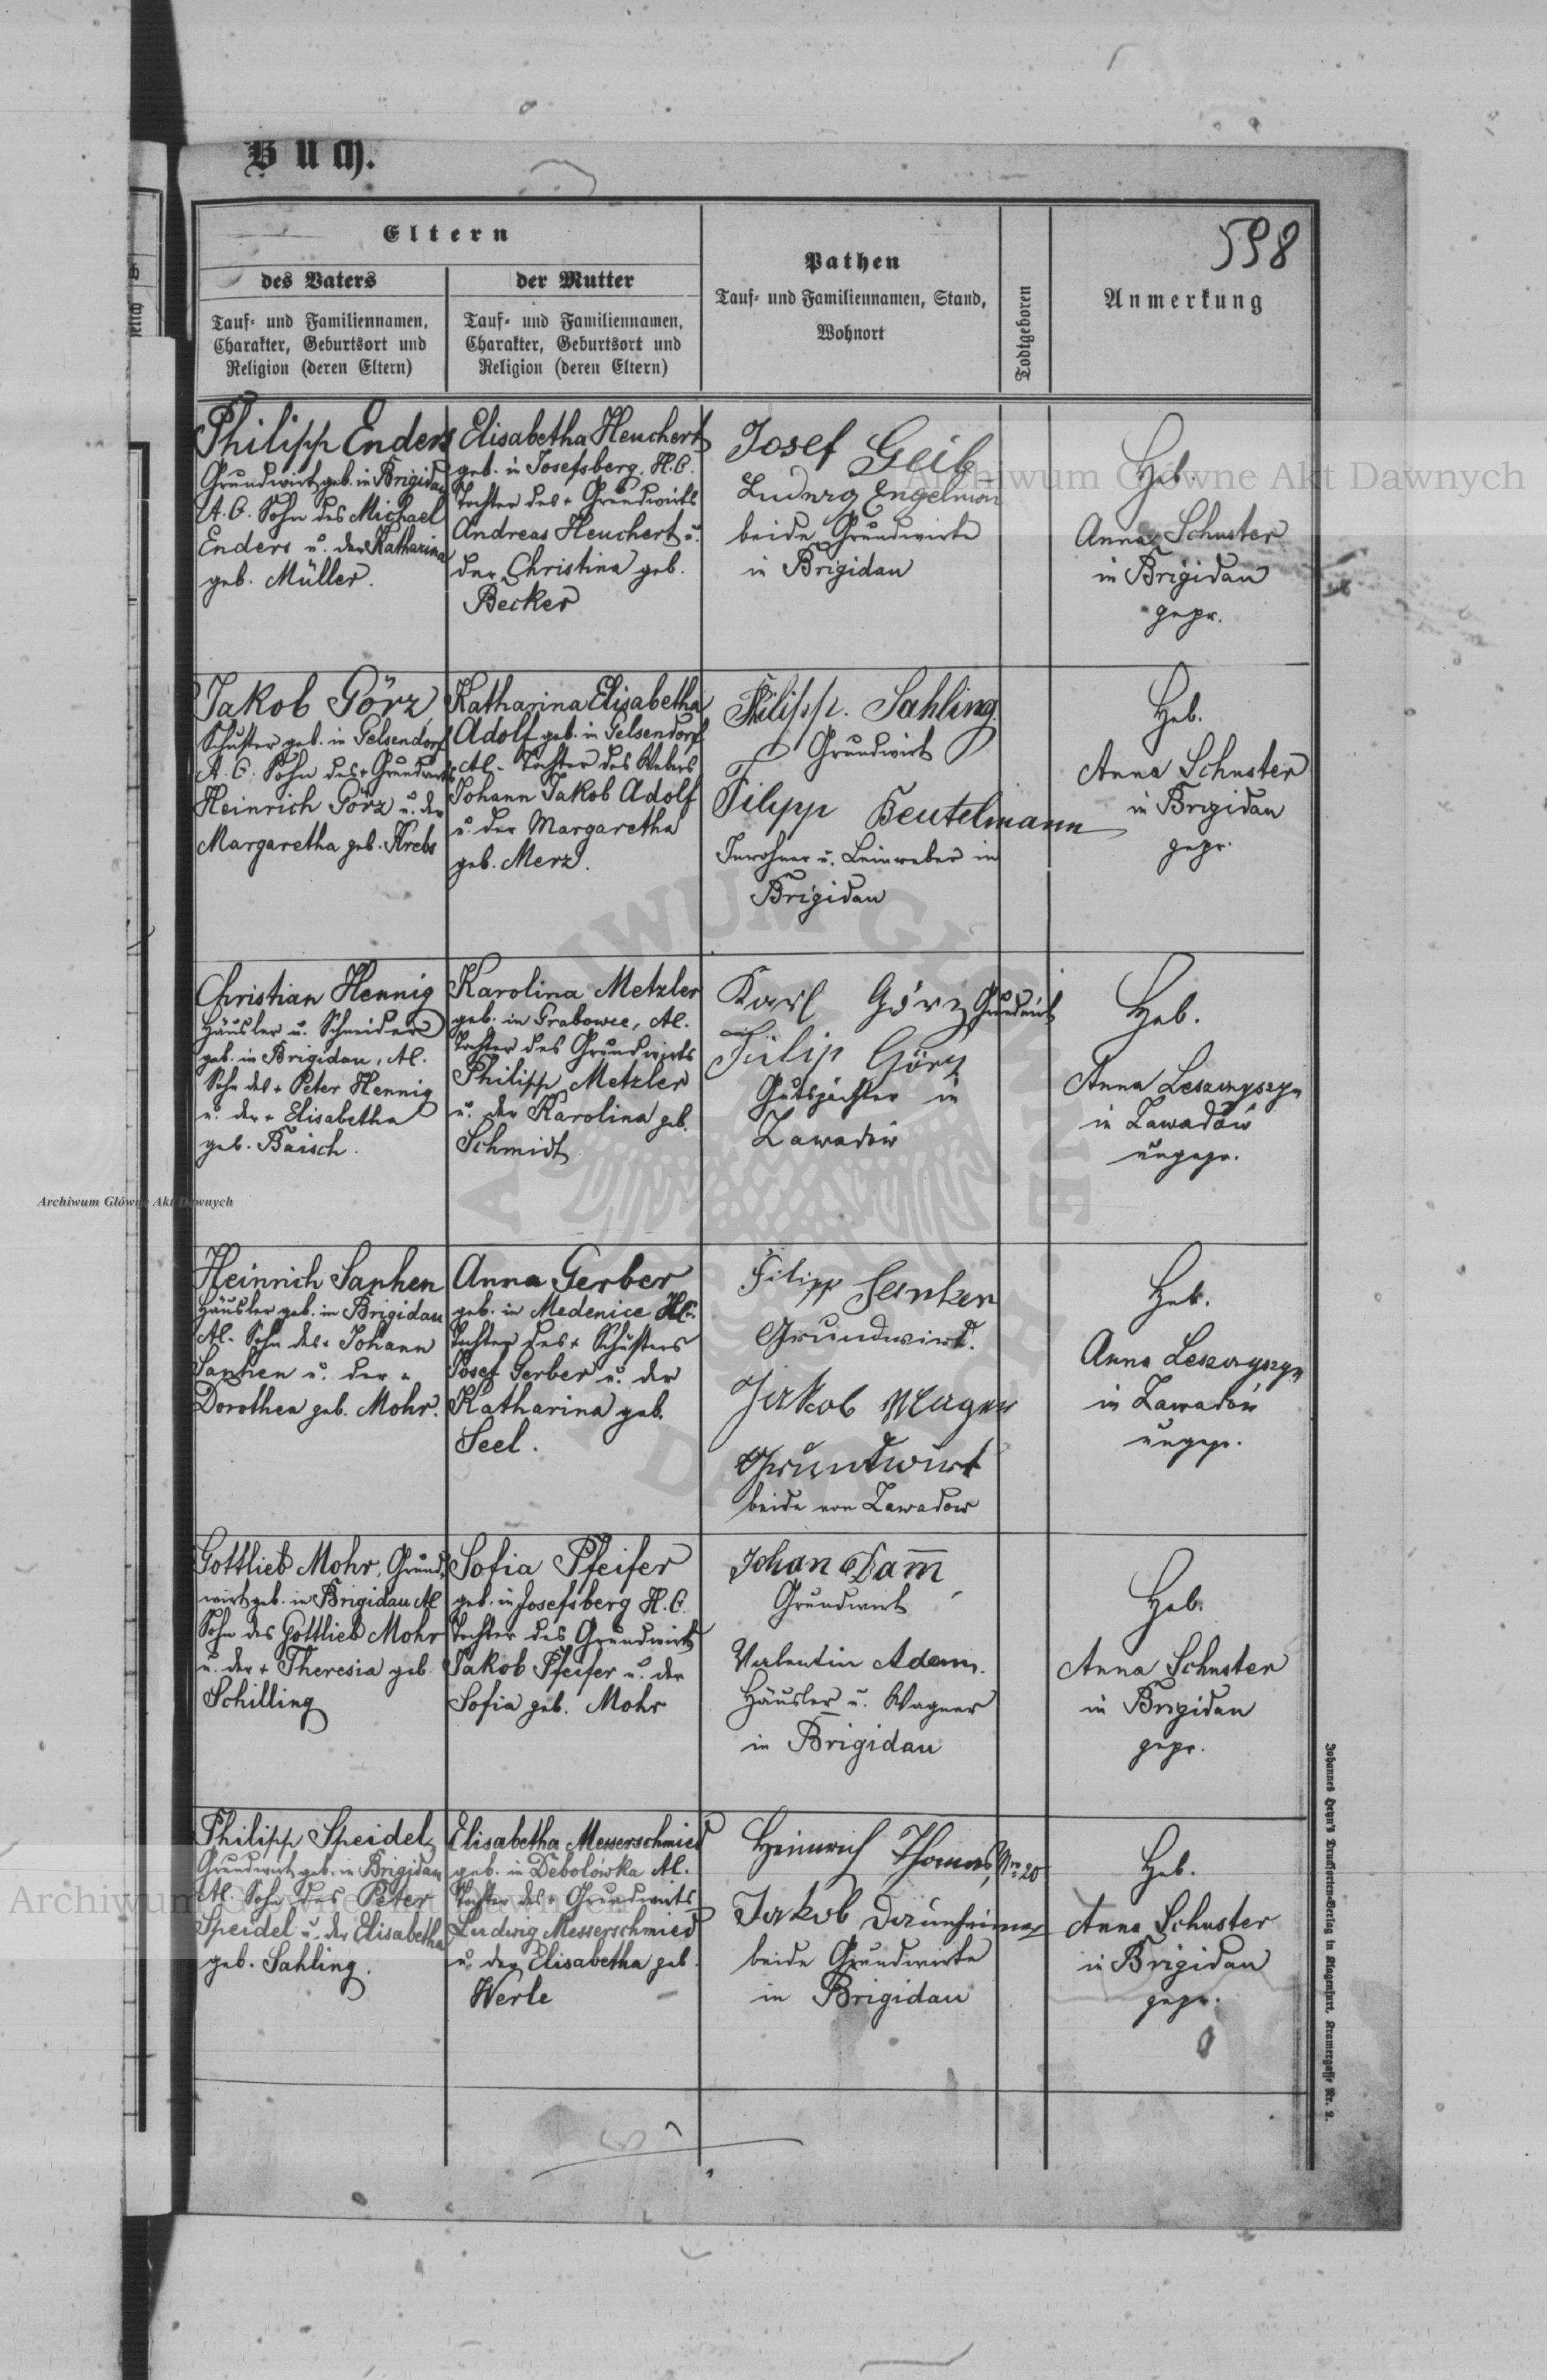 Buch.
598
Eltern
des Vaters
Tauf- und Familiennamen,
Charakter, Geburtsort und
Religion (deren Eltern)
der Mutter
Tauf- und Familiennamen,
Charakter, Geburtsort und
Religion (deren Eltern)
Pathen
Tauf- und Familiennamen, Stand,
Wohnort
Todtgeboren
Anmerkung
Philipp Enders
Grundwirt geb. in Brigidau
A. C. Sohn des Michael
Enders u. der Katharina
geb. Müller.
Elisabetha Heuchert
geb. in Josefsberg, H. C.
Tochter des + Grundwirts
Andreas Heuchert u.
der Christina geb.
Becker
Josef Geib
Ludwig Engelmann
beide Grundwirte
in Brigidau
Heb.
Anna Schuster
in Brigidau
gepr.
Jakob Görz
Schuster geb. in Gelsendorf
A. C. Sohn des + Grundwirts
Heinrich Görz u. der
Margaretha geb. Krebs
Katharina Elisabetha
Adolf geb. in Gelsendorf
AC. Tochter des Webers
Johann Jakob Adolf
u. der Margaretha
geb. Merz.
Philipp. Sahling
Grundwirt
Filipp Beutelmann
Inwohner u. Leinweber in
Brigidau
Heb.
Anna Schuster
in Brigidau
gepr.
Christian Hennig
Häusler u. Schneider
geb. in Brigidau, AC.
Sohn des + Peter Hennig
u. der + Elisabetha
geb. Baisch.
Karolina Metzler
geb. in Grabowce, AC.
Tochter des Grundwirts
Philipp Metzler
u. der Karolina geb.
Schmidt
Karl Görz Grundwirt
Filip Görz
Gutspächter in
Zawadów
Heb.
Anna Leszczyszyn
in Zawadów
ungepr.
Heinrich Saphen
Häusler geb. in Brigidau
AC. Sohn des + Johann
Saphen u. der +
Dorothea geb. Mohr.
Anna Gerber
geb. in Medenice HC.
Tochter des + Schusters
Josef Gerber u. der
Katharina geb.
Seel.
Filipp
Grundwirt.
Jakob Mager
Grundwirt
beide von Zawadow
Heb.
Anna Leszczyszyn
in Zawadów
ungepr.
Gottlieb Mohr, Grund-
wirt geb. in Brigidau AC
Sohn des Gottlieb Mohr
u. der + Theresia geb.
Schilling
Sofia Pfeifer
geb. in Josefsberg H. C.
Tochter des Grundwirts
Jakob Pfeifer u. der
Sofia geb. Mohr
Johan Dam̅
Grundwirt
Valentin Adam.
Häusler u. Wagner
in Brigidau
Heb.
Anna Schuster
in Brigidau
gepr.
Philipp Speidel,
Grundwirt geb. in Brigidau
AC. Sohn des Peter
Speidel u. der Elisabetha
geb. Sahling.
Elisabetha Messerschmied
geb. in Debolowka AC.
Tochter des + Grundwirts
Ludwig Messerschmied
u. der Elisabetha geb.
Werle
Heinrich Thomas, Nro 20
Jakob Daumheimer
beide Grundwirte
in Brigidau
Heb.
Anna Schuster
in Brigidau
gepr.
Johannes Heyn's Drucksorten-Verlag in Klagenfurt, Kramergasse Nr. 2.
Archiwum Główne Akt Dawnych
Archiwum Główne Akt Dawnych
Archiwum Główne Akt Dawnych